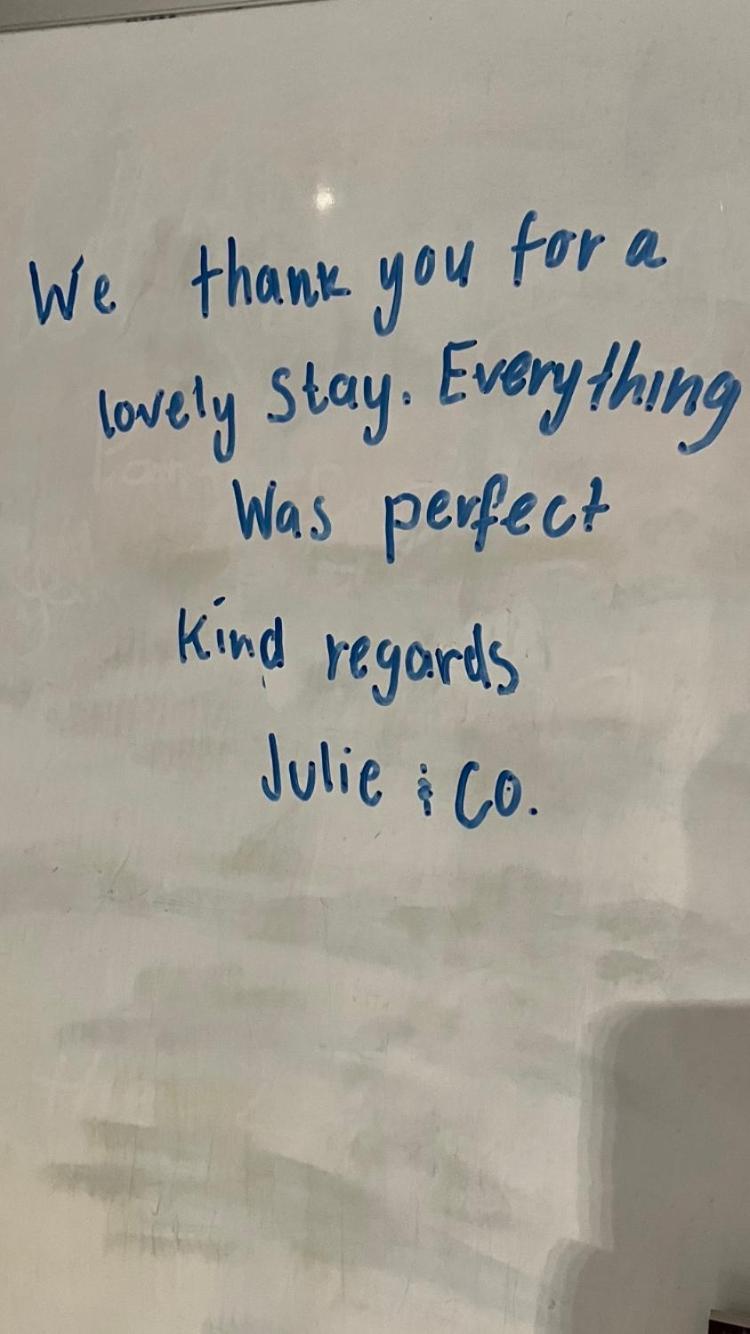 We thank you for a
lovely stay. Everything
Was perfect
Kind regards
Julie & Co.